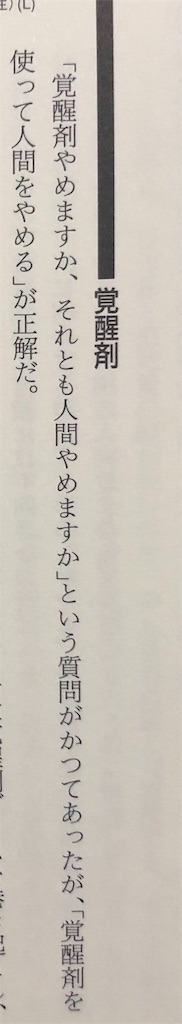 覚醒剤
「覚醒剤やめますか、それとも人間やめますか」という質問がかつてあったが、「覚醒剤を
使って人間をやめる」が正解だ。